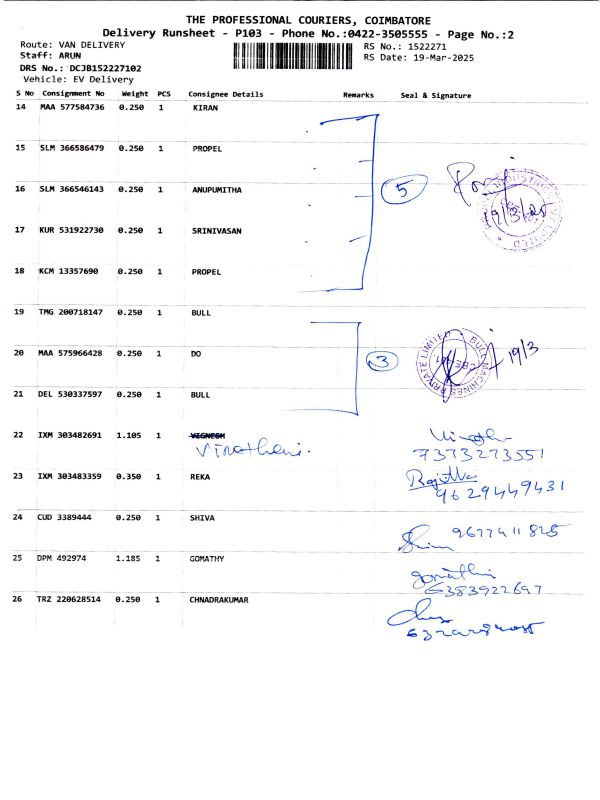 THE PROFESSIONAL COURIERS, COIMBATORE
Delivery Runsheet - P103 - Phone No.:0422-3505555 - Page No.:2
Route: VAN DELIVERY RS No.: 1522271
Staff: ARUN RS Date: 19-Mar-2025
DRS No.: DCJB152227102
Vehicle: EV Delivery
S No Consignment No Weight PCS Consignee Details Remarks Seal & Signature
14 MAA 577584736 0.250 1 KIRAN
15 SLM 366586479 0.250 1 PROPEL
16 SLM 366546143 0.250 1 ANUPUMITHA 5 19/3/25
17 KUR 531922730 0.250 1 SRINIVASAN
18 KCM 13357690 0.250 1 PROPEL
19 TMG 200718147 0.250 1 BULL
20 MAA 575966428 0.250 1 DO 3 BULL MACHINES PRIVATE LIMITED 19/3
21 DEL 530337597 0.250 1 BULL
22 IXM 303482691 1.105 1 VIGNESH
7373273551
23 IXM 303483359 0.350 1 REKA
9629449431
24 CUD 3389444 0.250 1 SHIVA
9677411825
25 DPM 492974 1.185 1 GOMATHY
gomathi
6383922697
26 TRZ 220628514 0.250 1 CHNADRAKUMAR